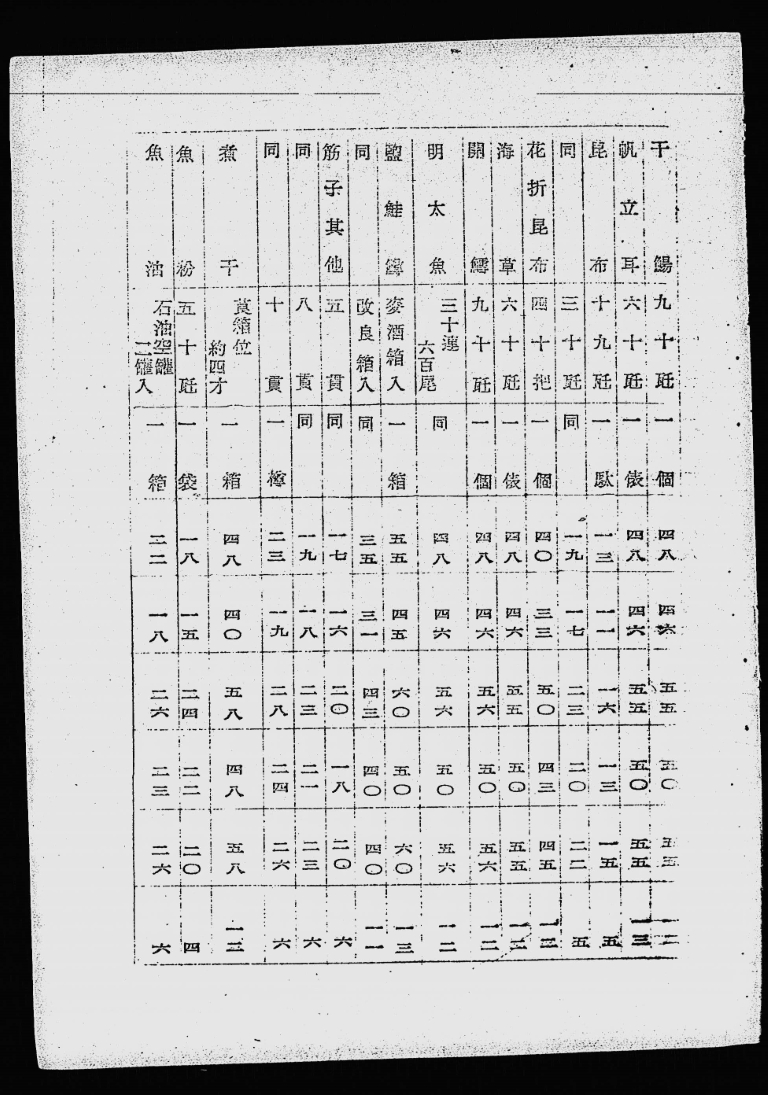 干鰑 九十瓩 一個 四八 四六 五五 五〇 五五 一二
帆立耳 六十瓩 一俵 四八 四六 五五 五〇 五五 一三
昆布 十九瓩 一駄 一三 一一 一六 一三 一五 五
同 三十瓩 同 一九 一七 二三 二〇 二二 五
花折昆布 四十把 一個 四〇 三三 五〇 四三 四五 一二
海草 六十瓩 一俵 四八 四六 五五 五〇 五五 一二
開鱈 九十瓩 一個 四八 四六 五六 五〇 五六 一二
明太魚 三十連 六百尾 同 四八 四六 五六 五〇 五六 一二
鹽鮭鱒 麥酒箱入 一箱 五五 四五 六〇 五〇 六〇 一三
同 改良箱入 同 三五 三一 四三 四〇 四〇 一一
筋子其他 五貫 同 一七 一六 二〇 一八 二〇 六
同 八貫 同 一九 一八 二三 二一 二三 六
同 十貫 一樽 二三 一九 二八 二四 二六 六
煮干 莨箱位 約四才 一箱 四八 四〇 五八 四八 五八 一三
魚粉 五十瓩 一袋 一八 一五 二四 二二 二〇 四
魚油 石油空罐 二罐入 一箱 二二 一八 二六 二三 二六 六